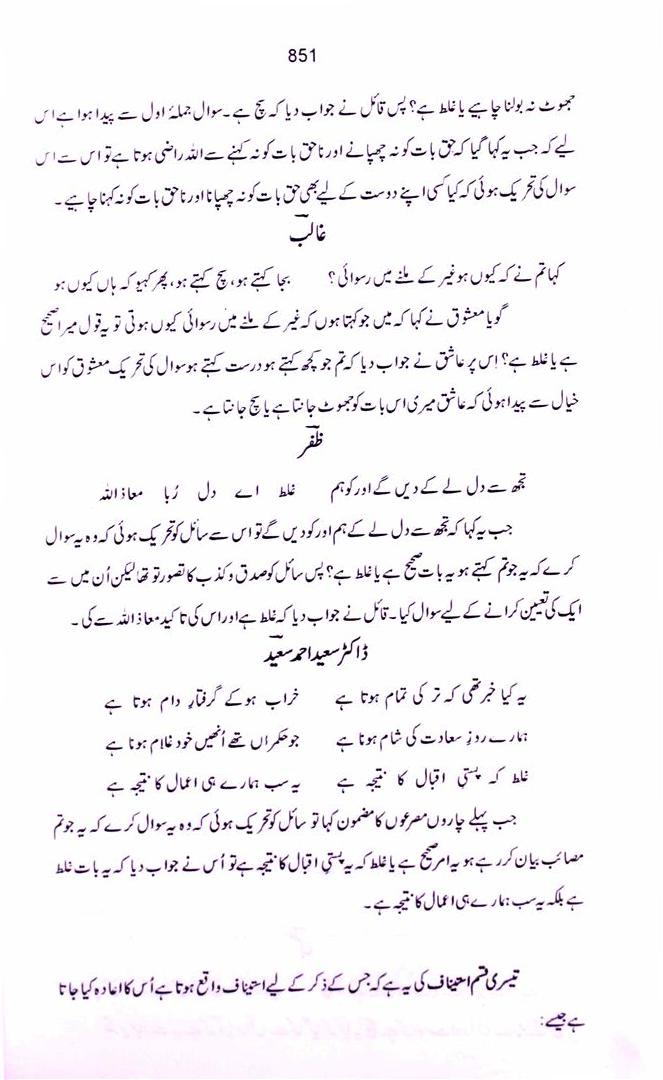 851
جھوٹ نہ بولنا چاہیے یا غلط ہے؟ پس قائل نے جواب دیا کہ سچ ہے۔ سوال جملۂ اول سے پیدا ہوا ہے اس
لیے کہ جب یہ کہا گیا کہ حق بات کو نہ چھپانے اور ناحق بات کو نہ کہنے سے اللہ راضی ہوتا ہے تو اس سے اس
سوال کی تحریک ہوئی کہ کیا کسی اپنے دوست کے لیے بھی حق بات کو نہ چھپانا اور ناحق بات کو نہ کہنا چاہیے۔
غالب
کہا تم نے کہ کیوں ہو غیر کے ملنے میں رسوائی؟ بجا کہتے ہو، سچ کہتے ہو، پھر کہیو کہ ہاں کیوں ہو
گویا معشوق نے کہا کہ میں جو کہتا ہوں کہ غیر کے ملنے میں رسوائی کیوں ہوتی تو یہ قول میرا صحیح
ہے یا غلط ہے؟ اِس پر عاشق نے جواب دیا کہ تم جو کچھ کہتے ہو درست کہتے ہو سوال کی تحریک معشوق کو اس
خیال سے پیدا ہوئی کہ عاشق میری اس بات کو جھوٹ جانتا ہے یا سچ جانتا ہے۔
ظفر
تجھ سے دل لے کے دیں گے اور کو ہم غلط اے دل رُبا معاذ اللہ
جب یہ کہا کہ تجھ سے دل لے کے ہم اور کو دیں گے تو اس سے سائل کو تحریک ہوئی کہ وہ یہ سوال
کرے کہ یہ جو تم کہتے ہو یہ بات صحیح ہے یا غلط ہے؟ پس سائل کو صدق و کذب کا تصور تو تھا لیکن اُن میں سے
ایک کی تعیین کرانے کے لیے سوال کیا۔ قائل نے جواب دیا کہ غلط ہے اور اس کی تاکید معاذ اللہ سے کی۔
ڈاکٹر سعید احمد سعید
یہ کیا خبر تھی کہ ترکی تمام ہوتا ہے خراب ہو کے گرفتارِ دام ہوتا ہے
ہمارے روزِ سعادت کی شام ہونا ہے جو حکمراں تھے اُنھیں خود غلام ہونا ہے
غلط کہ پستیِ اقبال کا نتیجہ ہے یہ سب ہمارے ہی اعمال کا نتیجہ ہے
جب پہلے چاروں مصرعوں کا مضمون کہا تو سائل کو تحریک ہوئی کہ وہ یہ سوال کرے کہ یہ جو تم
مصائب بیان کر رہے ہو یہ امر صحیح ہے یا غلط کہ یہ پستیِ اقبال کا نتیجہ ہے تو اُس نے جواب دیا کہ یہ بات غلط
ہے بلکہ یہ سب ہمارے ہی اعمال کا نتیجہ ہے۔
تیسری قسم استیناف کی یہ ہے کہ جس کے ذکر کے لیے استیناف واقع ہوتا ہے اُس کا اعادہ کیا جاتا
ہے جیسے: